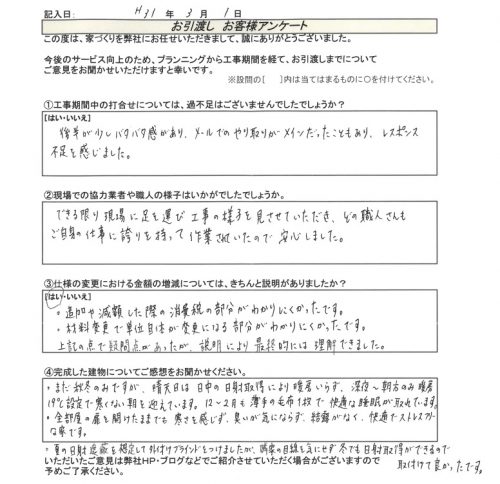 記入日: H31 年 3 月 1 日
お引渡し お客様アンケート
この度は、家づくりを弊社にお任せいただきまして、誠にありがとうございました。
今後のサービス向上のため、プランニングから工事期間を経て、お引渡しまでについて
ご意見をお聞かせいただけますと幸いです。
※設問の[ ]内は当てはまるものに○を付けてください。
①工事期間中の打合せについては、過不足はございませんでしたでしょうか？
[はい・いいえ]
後半が少しバタバタ感があり、メールでのやり取りがメインだったこともあり、レスポンス
不足を感じました。
②現場での協力業者や職人の様子はいかがでしたでしょうか。
できる限り現場に足を運び工事の様子を見させていただき、どの職人さんも
ご自身の仕事に誇りを持って作業されていたので安心しました。
③仕様の変更における金額の増減については、きちんと説明がありましたか？
[はい・いいえ]
・追加や減額した際の消費税の部分がわかりにくかったです。
・材料変更で単位自体が変更になる部分がわかりにくかったです。
上記の点で疑問点があったが、説明により最終的には理解できました。
④完成した建物についてご感想をお聞かせください。
・まだ秋冬のみですが、晴天日は日中の日射取得により暖房いらず、深夜～朝方のみ暖房
19℃設定で寒くない朝を迎えています。12～2月も薄手の毛布1枚で快適な睡眠が取れています。
・全部屋の扉を開けたままでも寒さを感じず、臭いが気にならず、結露がなく、快適でストレスフリー
な家です。
・夏の日射遮蔽を想定して外付けブラインドをつけましたが、隣家の目線を気にせず冬でも日射取得ができるので
取付けて良かったです。
いただいたご意見は弊社HP・ブログなどでご紹介させていただく場合がございますので
予めご了承ください。